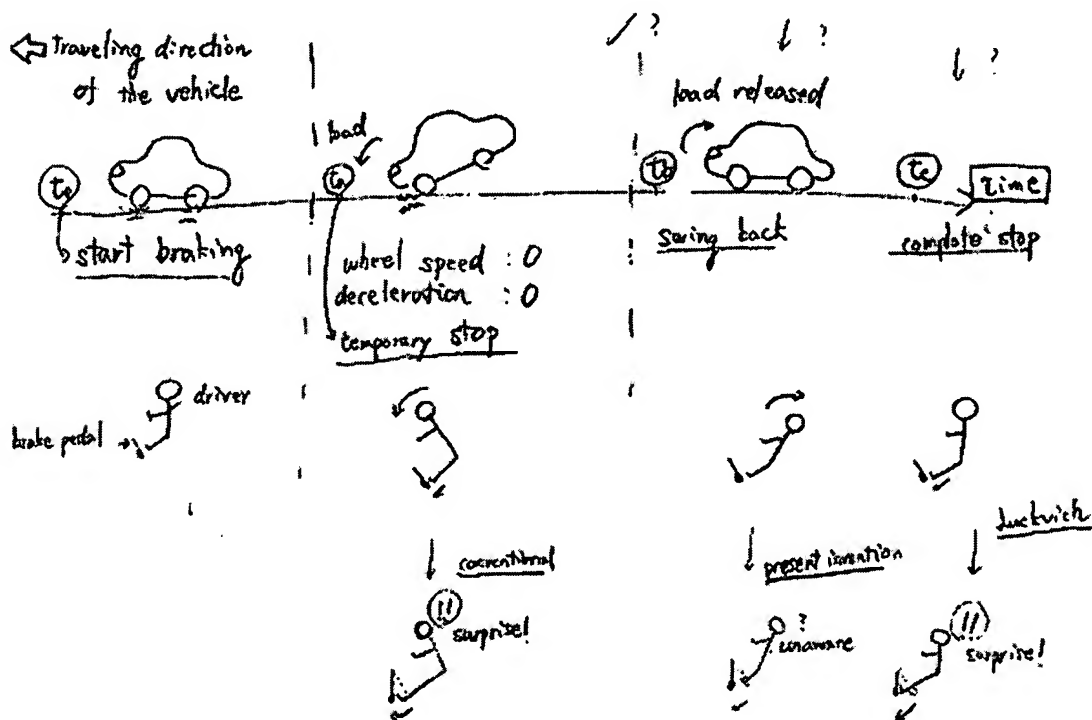 traveling direction
of the vehicle
?
?
?
load released
load
time
start braking
wheel speed : 0
deceleration : 0
temporary stop
swing back
complete stop
driver
brake pedal
conventional
surprise!
present invention
?
unaware
!!
surprise!
!!